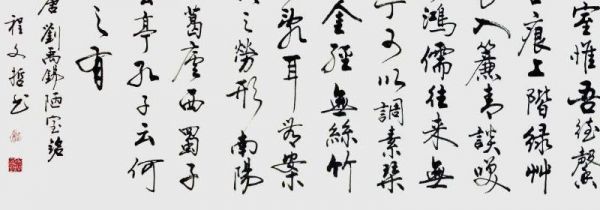 室惟吾德馨
痕上階緑艸
入簾青談笑
鴻儒往来無
丁可以調素琴
金經無絲竹
乱耳無案
之勞形南陽
葛廬西蜀子
云亭孔子云何
之有
唐劉禹錫陋室銘
程文哲书